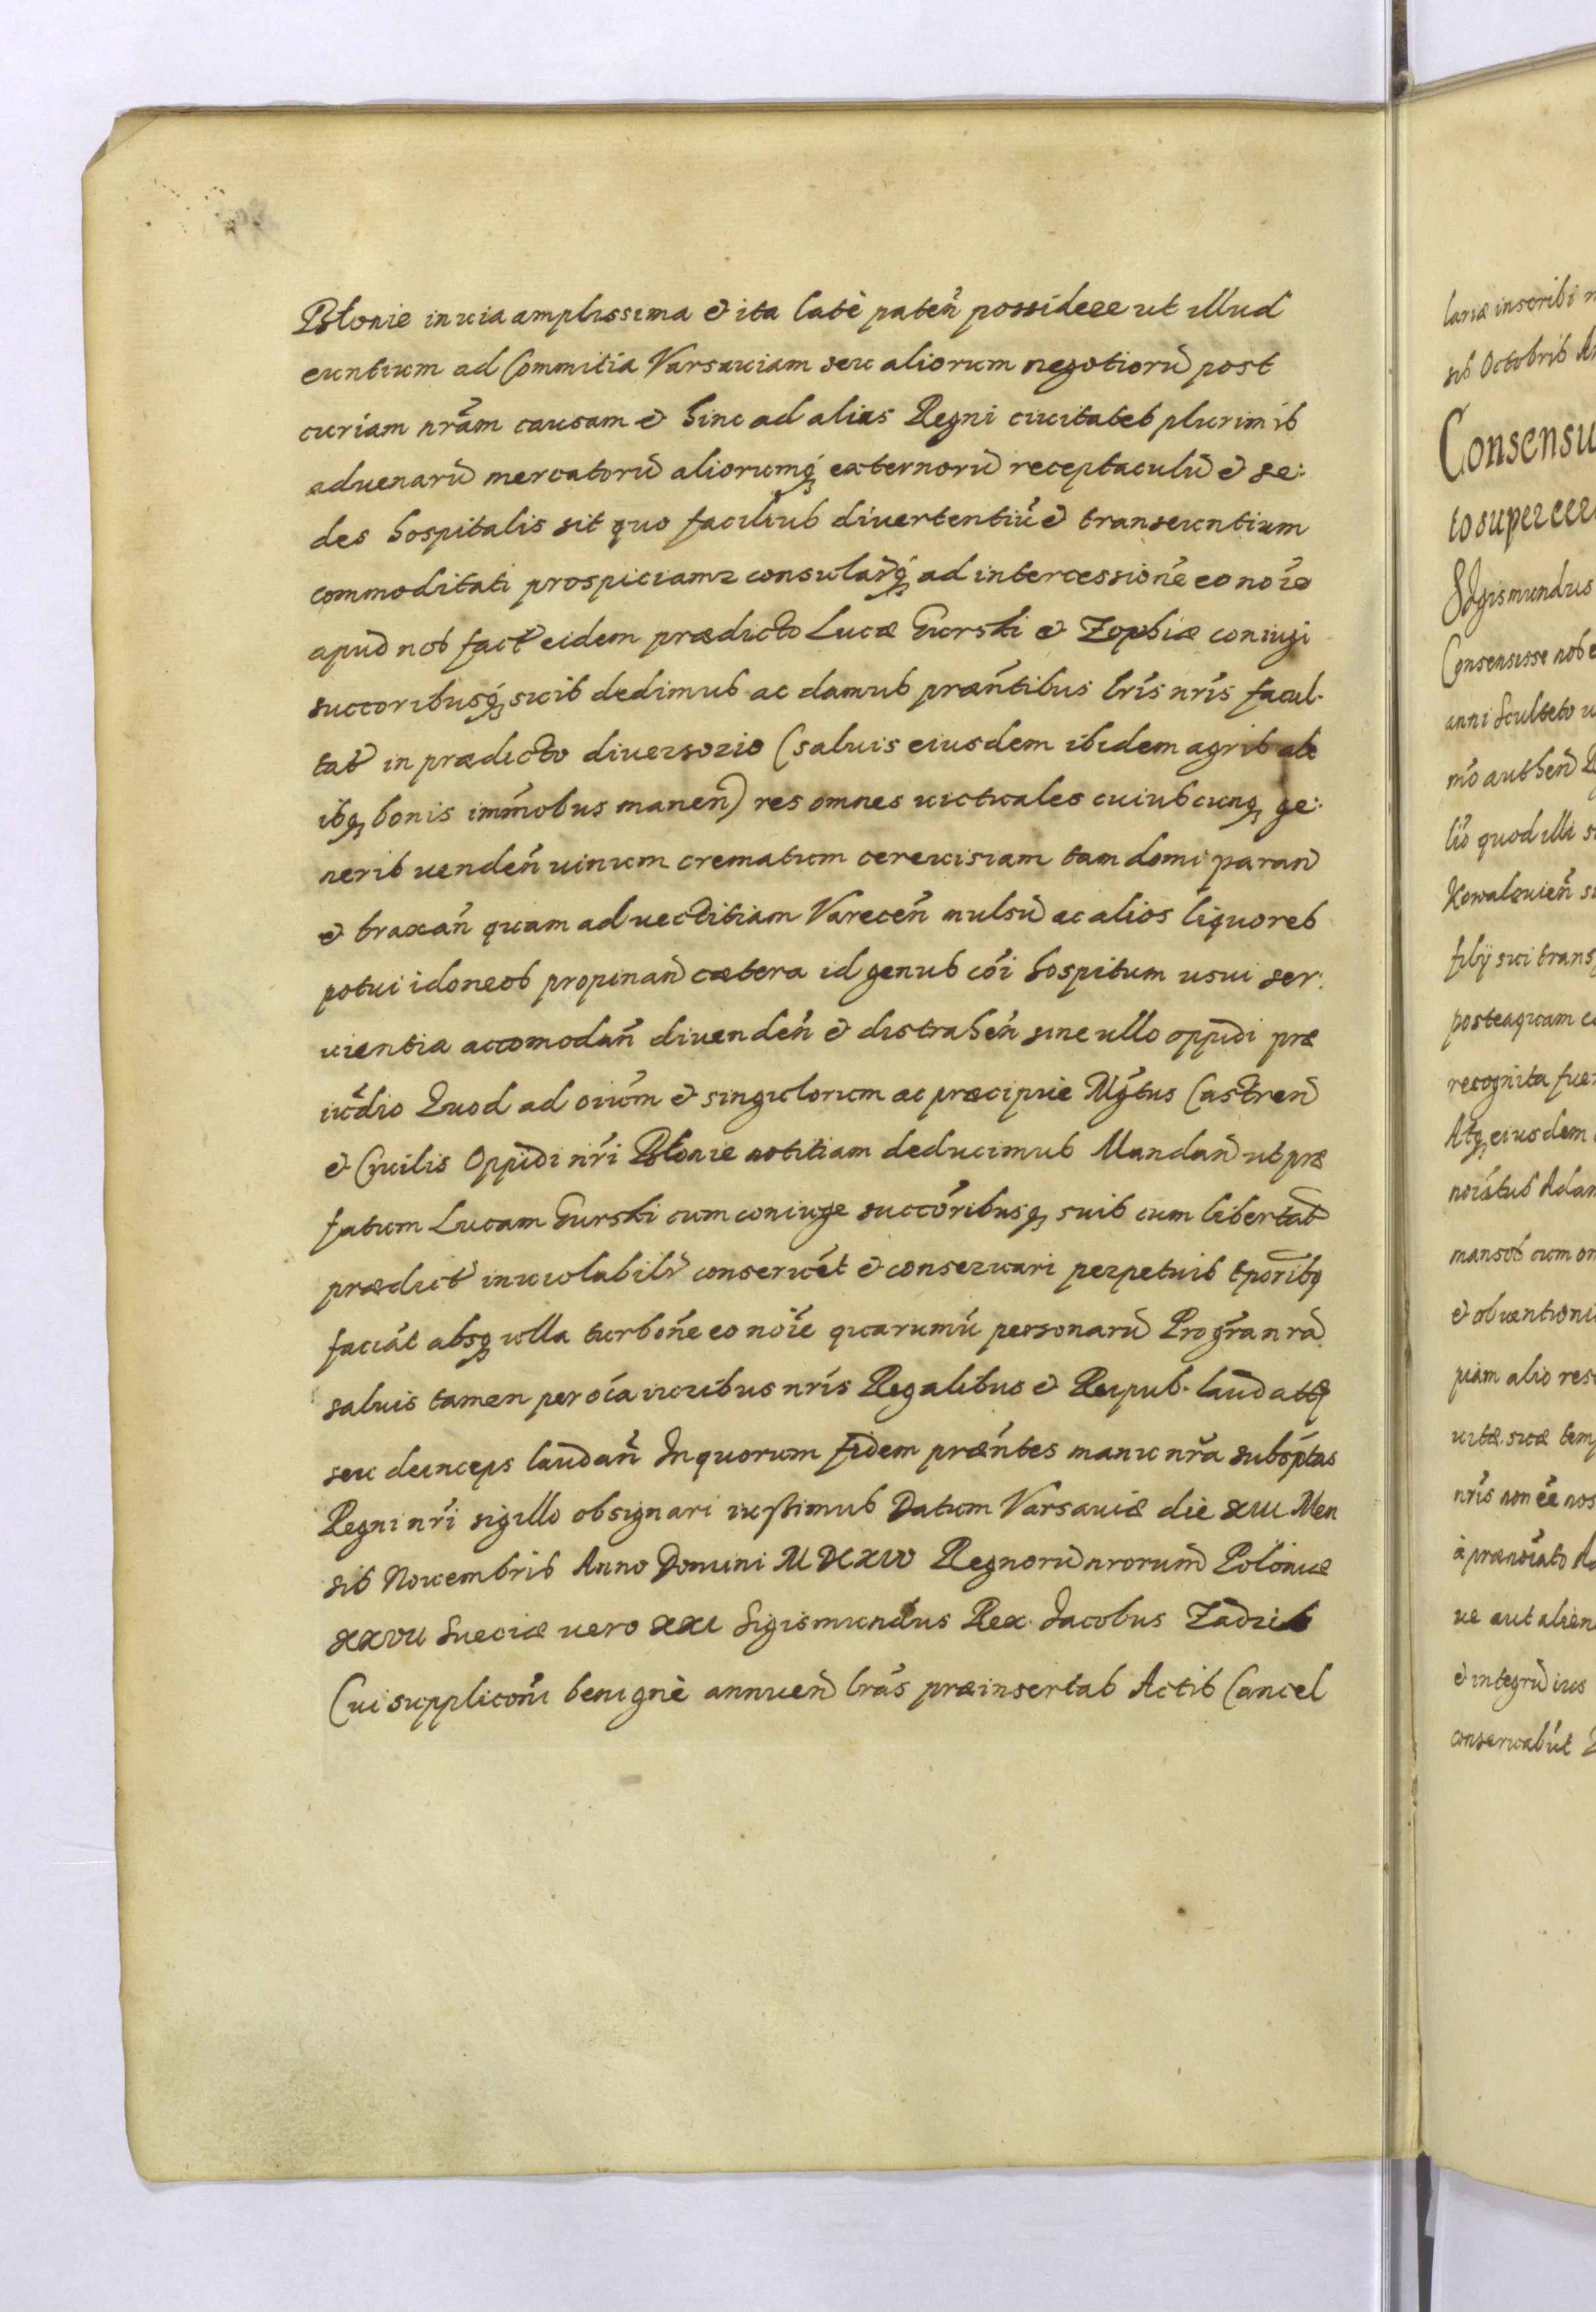 Błonie in uia amplissima et ita latè pateñ possidere ut illud
euntium ad Commitia Varsauiam seu aliorum negotiorũ post
curiam nr̃am causam et hinc ad alias Regni ciuitates plurimis
aduenarũ mercatorũ aliorumq́ externorũ receptaculũ et se:
des hospitalis sit quo facilius diuertentiũ et transeuntium
commoditati prospiciamz consulat̃q́ ad intercessionẽ eo noĩe
apud nos fact̃ eidem prædicto Lucæ Gurski et Zophiæ coniugi
succoribusq́ suis dedimus ac damus præñtibus lr̃is nr̃is facul-
tat̃ in prædicto diuersorio (saluis eiusdem ibidem agris ale
isq bonis imm̃obus maneñ) res omnes uictuales cuiuscunq ge:
neris uendeñ uinum crematum cereuisiam tam domi parañ
et braxañ quam aduectitiam Vareceñ mulsũ ac alios liquores
potui idoneos propinañ cætera id genus cõi hospitum usui ser:
uientia accomodañ diuendeñ et distraheñ sine ullo oppidi præ
iudĩo Quod ad oiũm et singulorum ac præcipue Mg̃tus Castreñ
et Ciuilis Oppidi nr̃i Błonie notitiam deducimus Mandañ ut præ
fatum Lucam Gurski cum coniuge succõribusq suis cum libertat̃
prædict̃ inuiolabilr̃ conseruẽt et conseruari perpetuis tpõribq
faciãt absq ulla turbõne eo noĩe quarumũ personarũ Pro gr̃a nrã
saluis tamen per oĩa iuribus nr̃is Regalibus et Reipub. laudatq
seu deinceps laudañ In quorum fidem præñtes manu nr̃a subsp̃tas
Regni nr̃i sigillo obsignari iussimus Datum Varsauiæ die XIII Men
sis Nouembris Anno Domini MDCXIV Regnorũ nrorum̃ Poloniæ
XXVII Sueciæ uero XXI Sigismundus Rex. Jacobus Zadzik
Cui supplicõni benignè annueñ lr̃as præinsertas Actis Cancel
lariæ inscribi
sis Octobris
Consensu
to super
Sigismundus
Consensisse nos
anni Sculteto
mõ autheñ
liõ quod illi
Kowalewień
filij sui trans
posteaquam
recognita fue
Atq eiusdem
noĩatus Adam
mansos cum om
et obuentioni
piam alio
uitæ suæ temp
nr̃is non eẽ nos
à prænoĩato
ue aut alien
et integrũ ius
conseruabũt